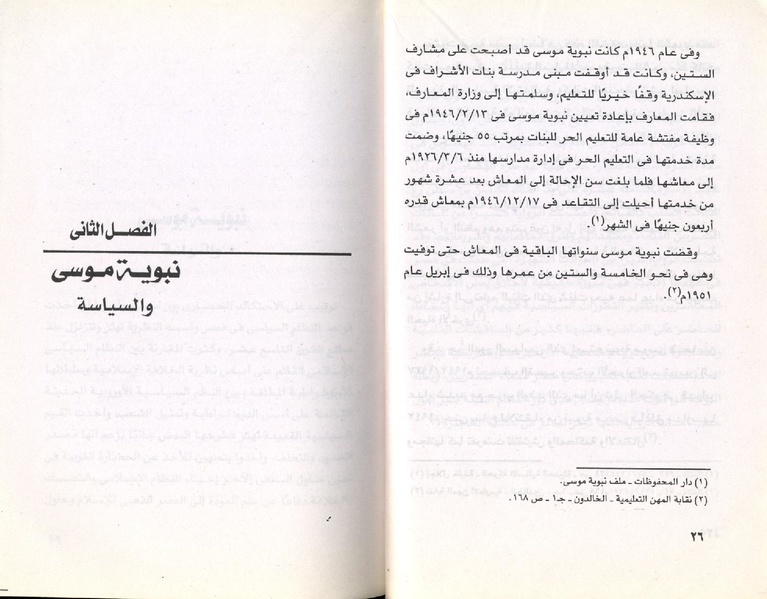 وفى عام ١٩٤٦م كانت نبوية موسى قد أصبحت على مشارف
الستين، وكانت قد أوقفت مبنى مدرسة بنات الأشراف فى
الإسكندرية وقفًا خيريًا للتعليم، وسلمتها إلى وزارة المعارف،
فقامت المعارف بإعادة تعيين نبوية موسى فى ١٩٤٦/٢/١٣م فى
وظيفة مفتشة عامة للتعليم الحر للبنات بمرتب ٥٥ جنيهًا، وضمت
مدة خدمتها فى التعليم الحر فى إدارة مدارسها منذ ١٩٢٦/٣/٦م
إلى معاشها فلما بلغت سن الإحالة إلى المعاش بعد عشرة شهور
من خدمتها أحيلت إلى التقاعد فى ١٩٤٦/١٢/١٧م بمعاش قدره
أربعون جنيهًا فى الشهر(١).
وقضت نبوية موسى سنواتها الباقية فى المعاش حتى توفيت
وهى فى نحو الخامسة والستين من عمرها وذلك فى إبريل عام
١٩٥١م(٢).
(١) دار المحفوظات ـ ملف نبوية موسى.
(٢) نقابة المهن التعليمية ـ الخالدون ـ جـ١ ـ ص ١٦٨.
٢٦
الفصل الثانى
نبوية موسى
والسياسة